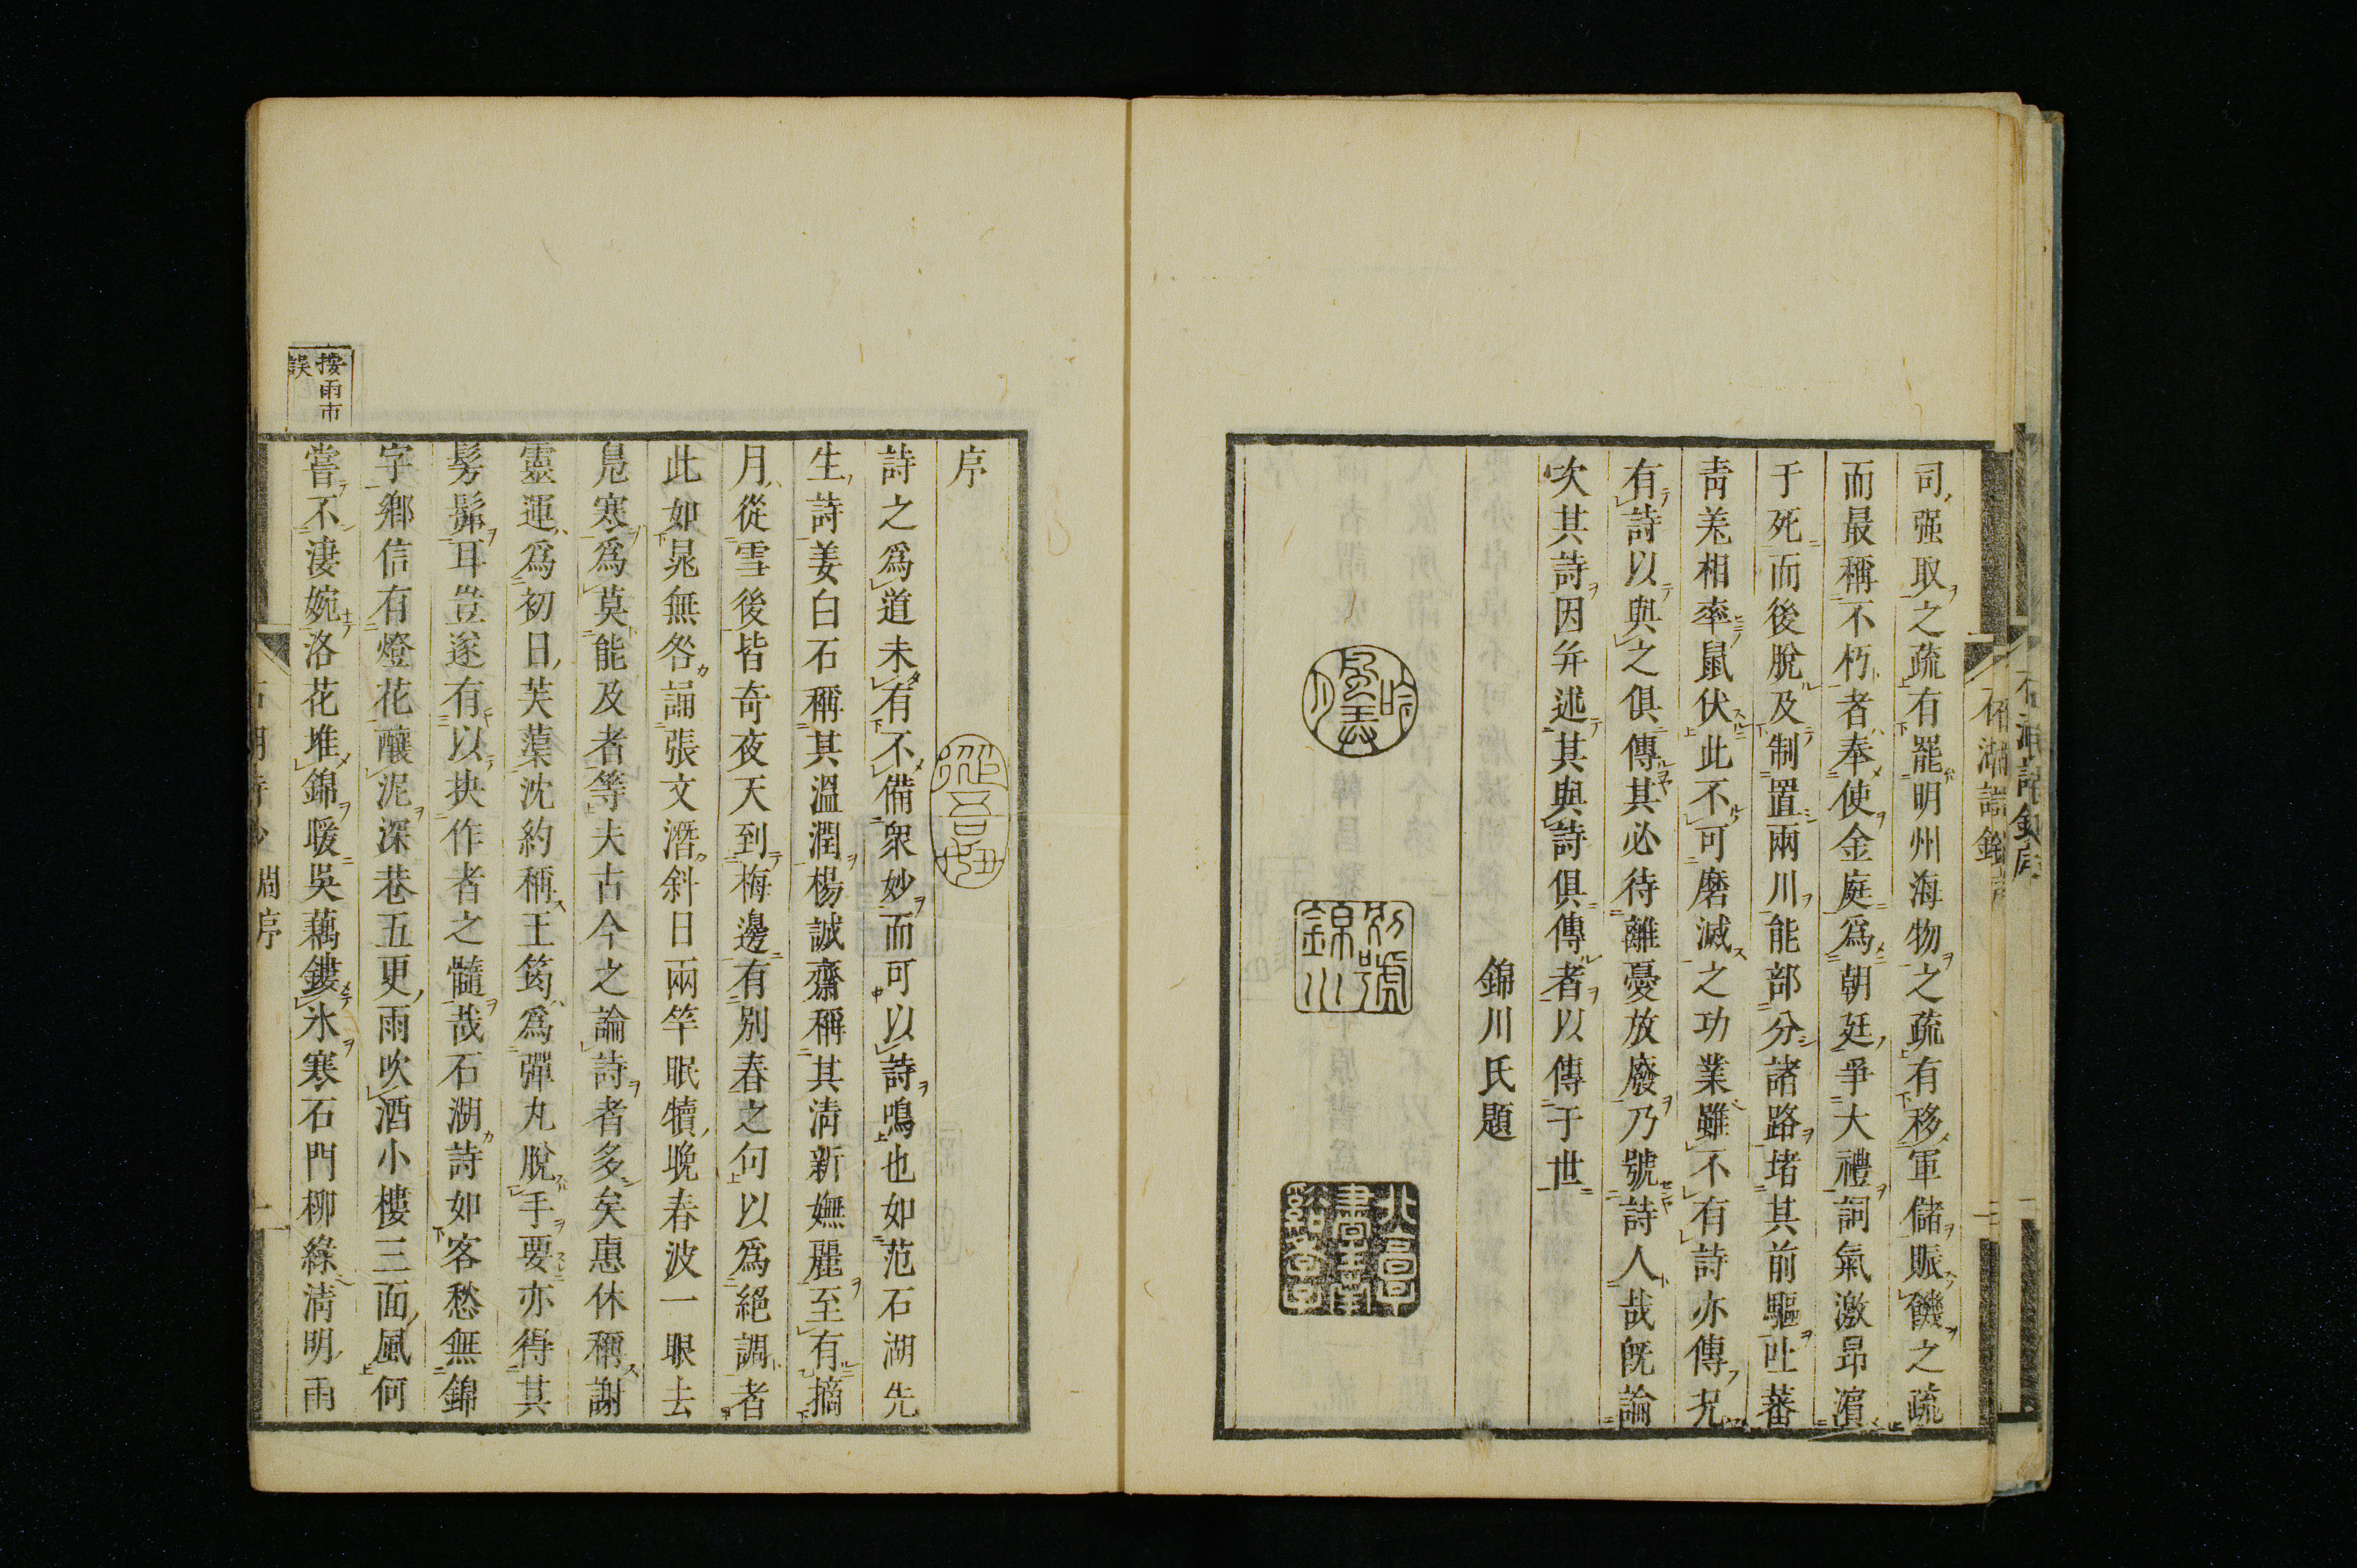 司强取之疏有罷明州海物之疏有移軍儲賑饑之疏
而最稱不朽者奉使金庭爲朝廷爭大禮詞氣激昂濵
于死而後脫及制置兩川能部分諸路堵其前驅吐蕃
靑羌相率鼠伏此不可磨滅之功業雖不有詩亦傳况
有詩以與之俱傳其必待離憂放廢乃號詩人哉旣論
次其詩因并述其與詩俱傳者以傳于世
錦川氏題
別號錦川
序
詩之爲道未有不備衆妙而可以詩鳴也如范石湖先
生詩姜白石稱其溫潤楊誠齋稱其淸新嫵麗至有摘
月從雪後皆奇夜天到梅邊有別春之句以爲絕調者
此如晁無咎誦張文潛斜日兩竿眠犢晚春波一眼去
鳧寒爲莫能及者等夫古今之論詩者多矣惠休稱謝
靈運爲初日芙蕖沈約稱王筠爲彈丸脫手要亦得其
髣髴耳豈遂有以抉作者之髓哉石湖詩如客愁無錦
字鄕信有燈花釀泥深巷五更雨吹酒小樓三面風何
嘗不淒婉洛花堆錦暖吳藕鏤氷寒石門柳綠淸明雨
按雨市
誤
周序